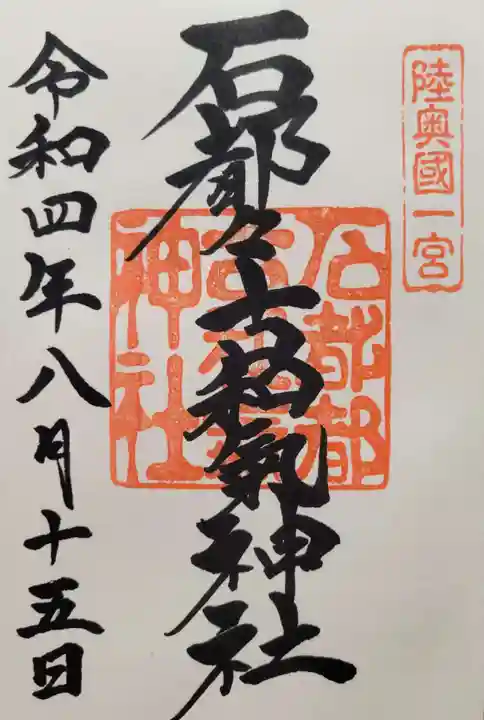 陸奥國一宮
石都々古和氣神社
石都都古和氣神社
令和四年八月十五日